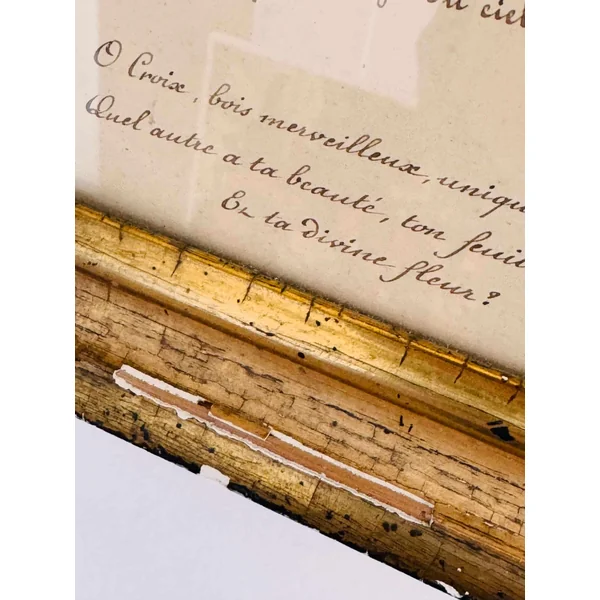 ciel
O Croix, bois merveilleux, uniqu
Quel autre a ta beauté, ton feuil
Et ta divine fleur?